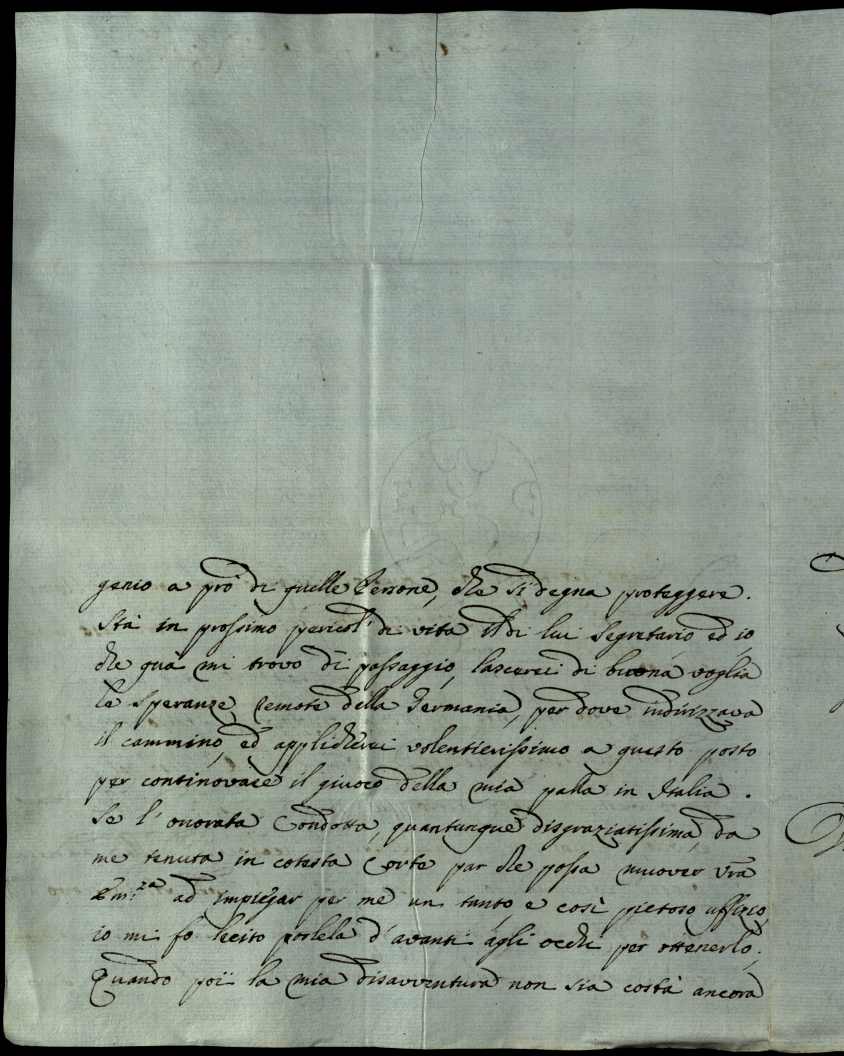 genio a prò di quelle Persone, che si degna proteggere.
Stà in prossimo pericol' di vita il di lui Segretario, ed io
che quà mi trovo di passaggio, lascerei di buona voglia
le Speranze remote della Germania, per dove indirizzava
il cammino, ed applicherei volentierissimo a questo posto
per continovare il giuoco della mia palla in Italia.
Se l'onorata Condotta, quantunque disgraziatissima, da
me tenuta in cotesta Corte par che possa muover Vrã
Em.za ad impiegar per me un tanto, e così pietoso uffizio,
io mi fò lecito porlela d'avanti agli occhi per ottenerlo.
Quando poi la mia disavventura non sia costà ancora